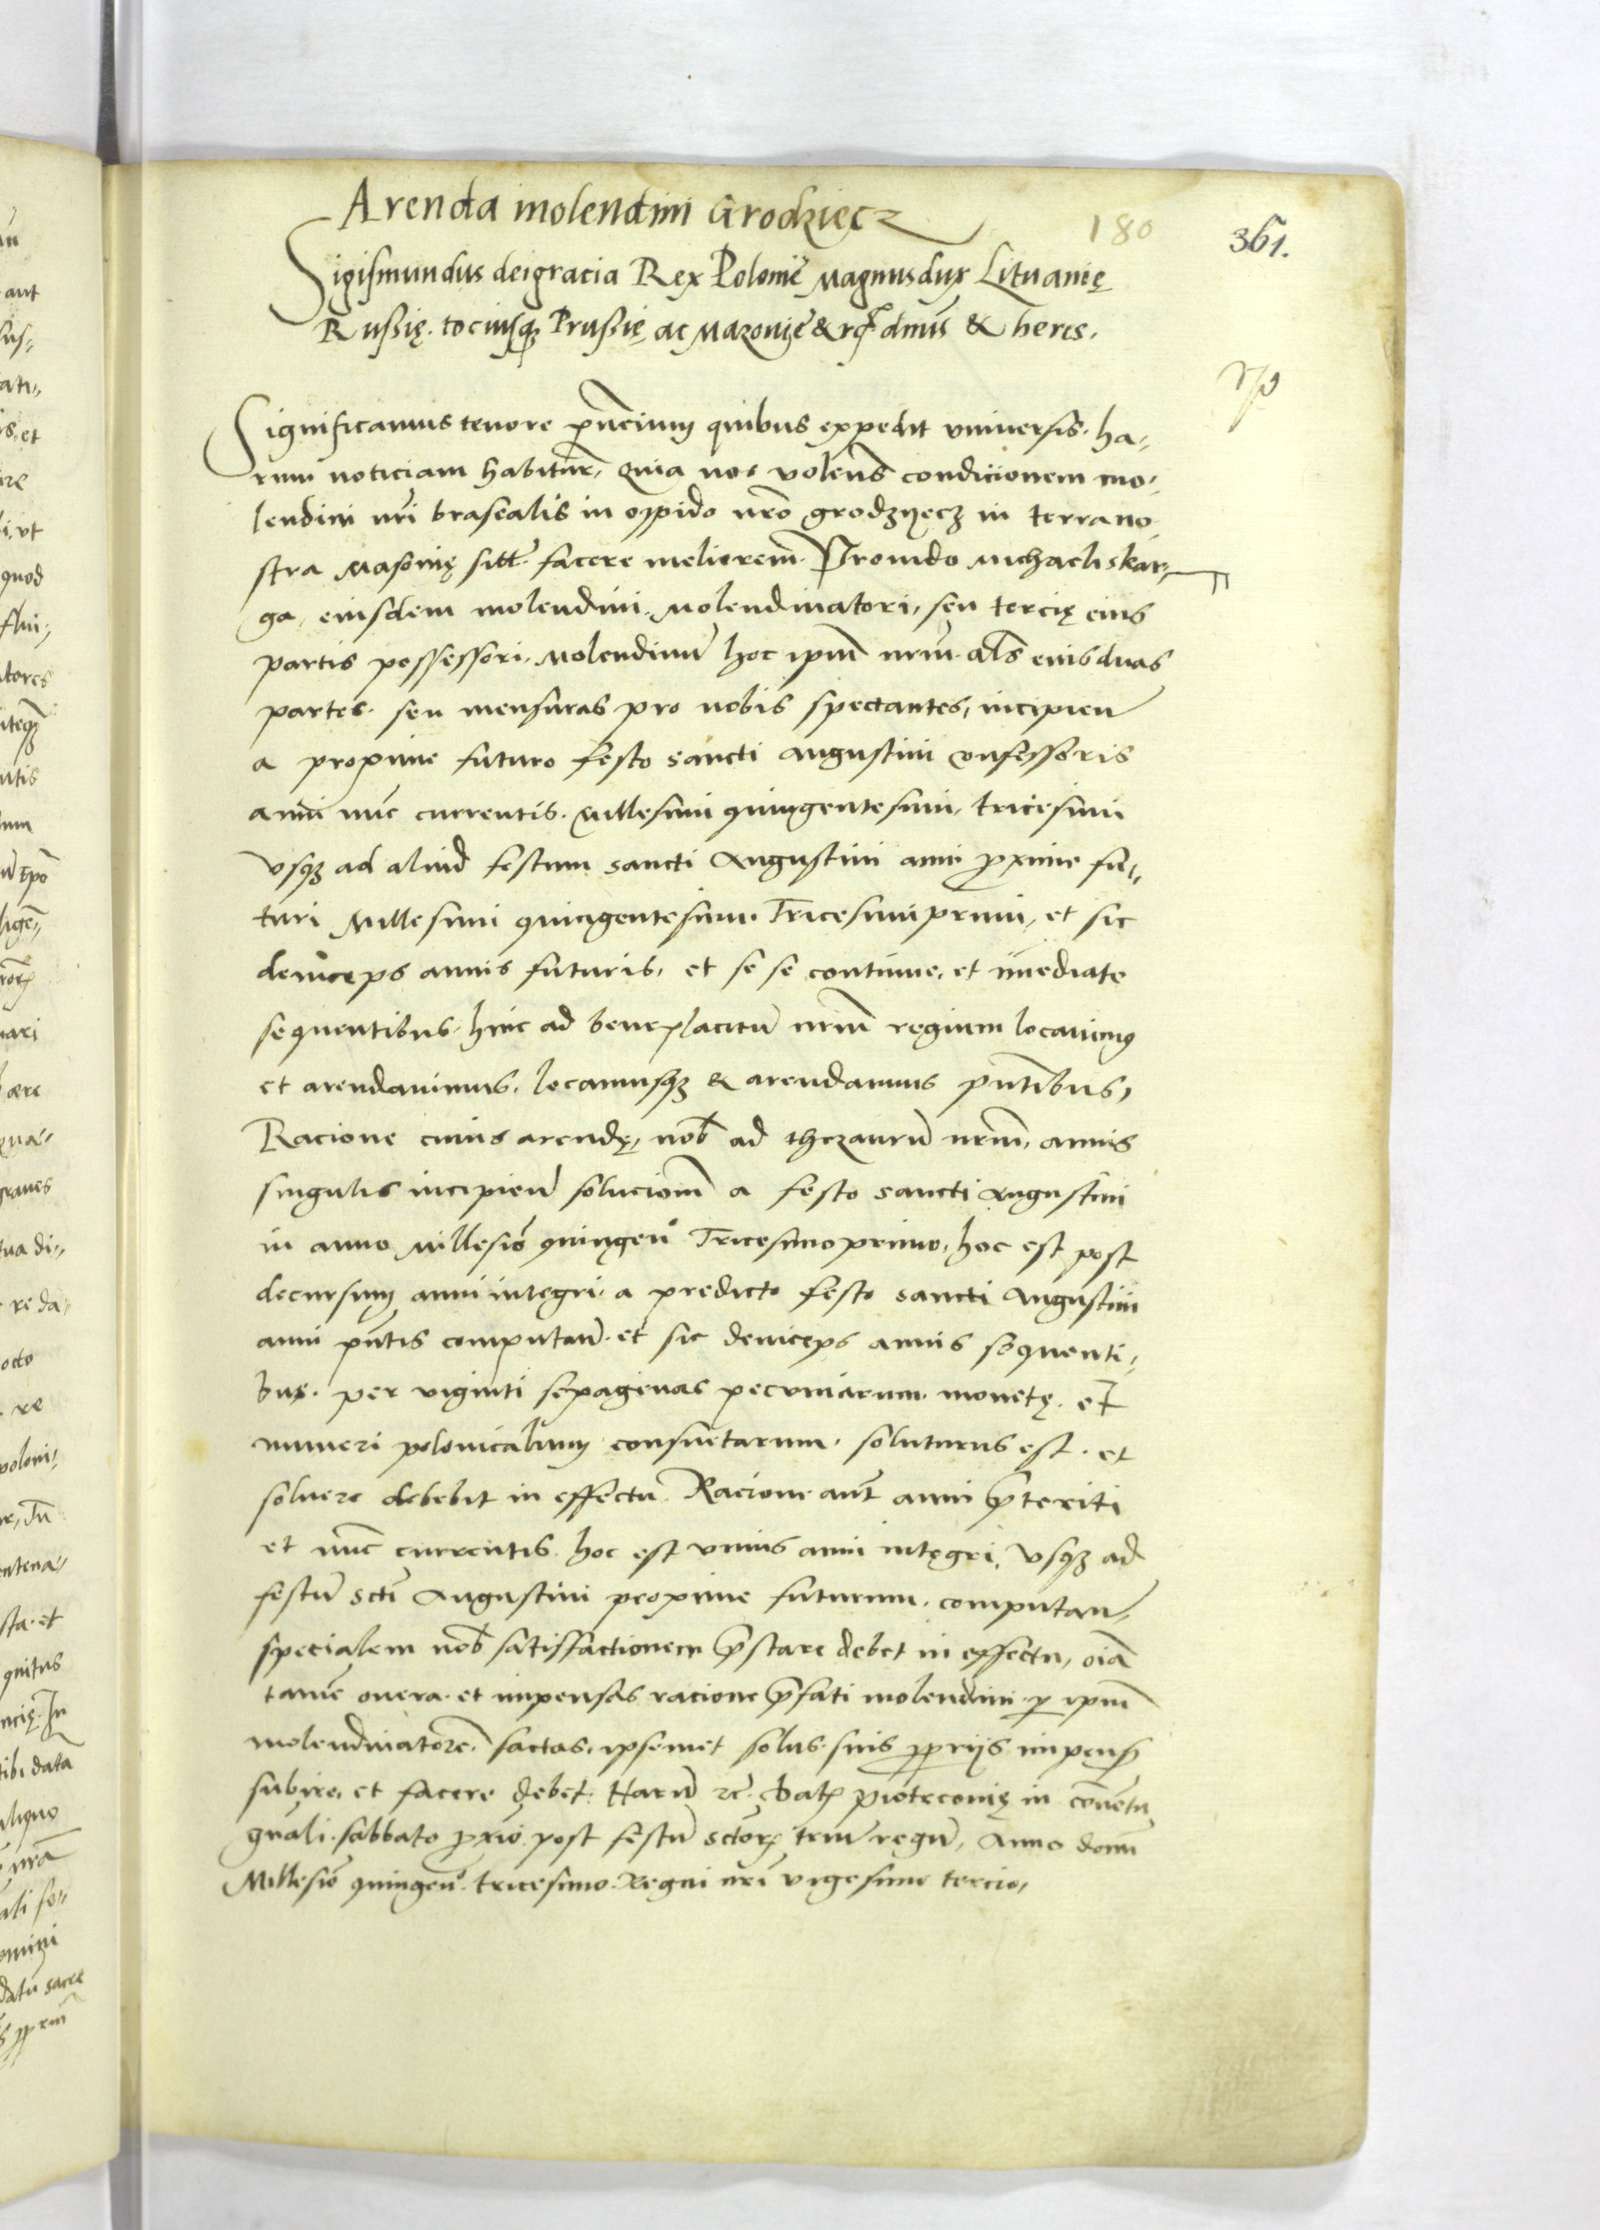 Arenda molendini Grodziecz
180
361.
Sigismundus dei gracia Rex Polonie Magnus dux Lituanię
Russię. tociusq₃ Prussię ac Mazovię & dn̄us & heres.
Significamus tenore pn̄cium quibus expedit universis. ha-
rum noticiam habitur̄, Quia nos volen̄s condicionem mo-
lendini nr̄i brasealis in oppido nr̄o grodzyecz in terra no
stra Masovię facere meliorem̄. Provido Michaeli skar-
ga, eiusdem molendini. Molendinatori, seu tercię eius
partis possessori. Molendinū hoc ipm̄ nrm̄ al̄s eius duas
partes. seu mensuras pro nobis spectantes, incipien̄
a proxime futuro festo sancti Augustini confessoris
anni nūc currentis. Millesimi quingentesimi, tricesimi
usq₃ ad aliud festum sancti Augustini anni ꝓxime fu-
turi Millesimi quingentesimi. Tricesimi primi, et sic
deinceps annis futuris, et se se continue, et im̄ediate
sequentibus, hinc ad beneplacitū nrm̄ regium locavimus
et arendavimus. locamusq₃ & arendamus pn̄tibus,
Racione cuius arendę, nob̄ ad thezaurū nrm̄, annis
singulis incipien̄ solucionē a festo sancti Augustini
in anno Millesiō quingen̄o Tricesimo primo, hoc est post
decursum anni integri. a predicto festo sancti Augustini
anni pn̄tis computan̄. et sic deinceps annis sequenti-
bus. per viginti sexagenas pecuniarum. monetę. et
numeri polonicalium consuetarum. soluturus est. et
solvere debebit in effectu. Racione aut̄ anni p̄teriti
et nūc currentis. hoc est unius anni integri, usq₃ ad
festū scti Augustini proxime futurum. computan̄,
specialem nob̄ satisfactionem p̄stare debet in effectu, oīa
tamē onera. et impensas racione p̄fati molendini. ꝑ ipm̄
molendinatorē. factas. ipsemet solus. suis ꝓprijs impens̄
subire, et facere debet. Harū rc̄. Dat̄ Piotrcovię in con̄vetu
gn̄ali. sabbato ꝓxiō post festū sctor̄ triū regū, Anno domi
Millesiō quingen̄o. tricesimo. Regni nr̄i vigesimo tercio,